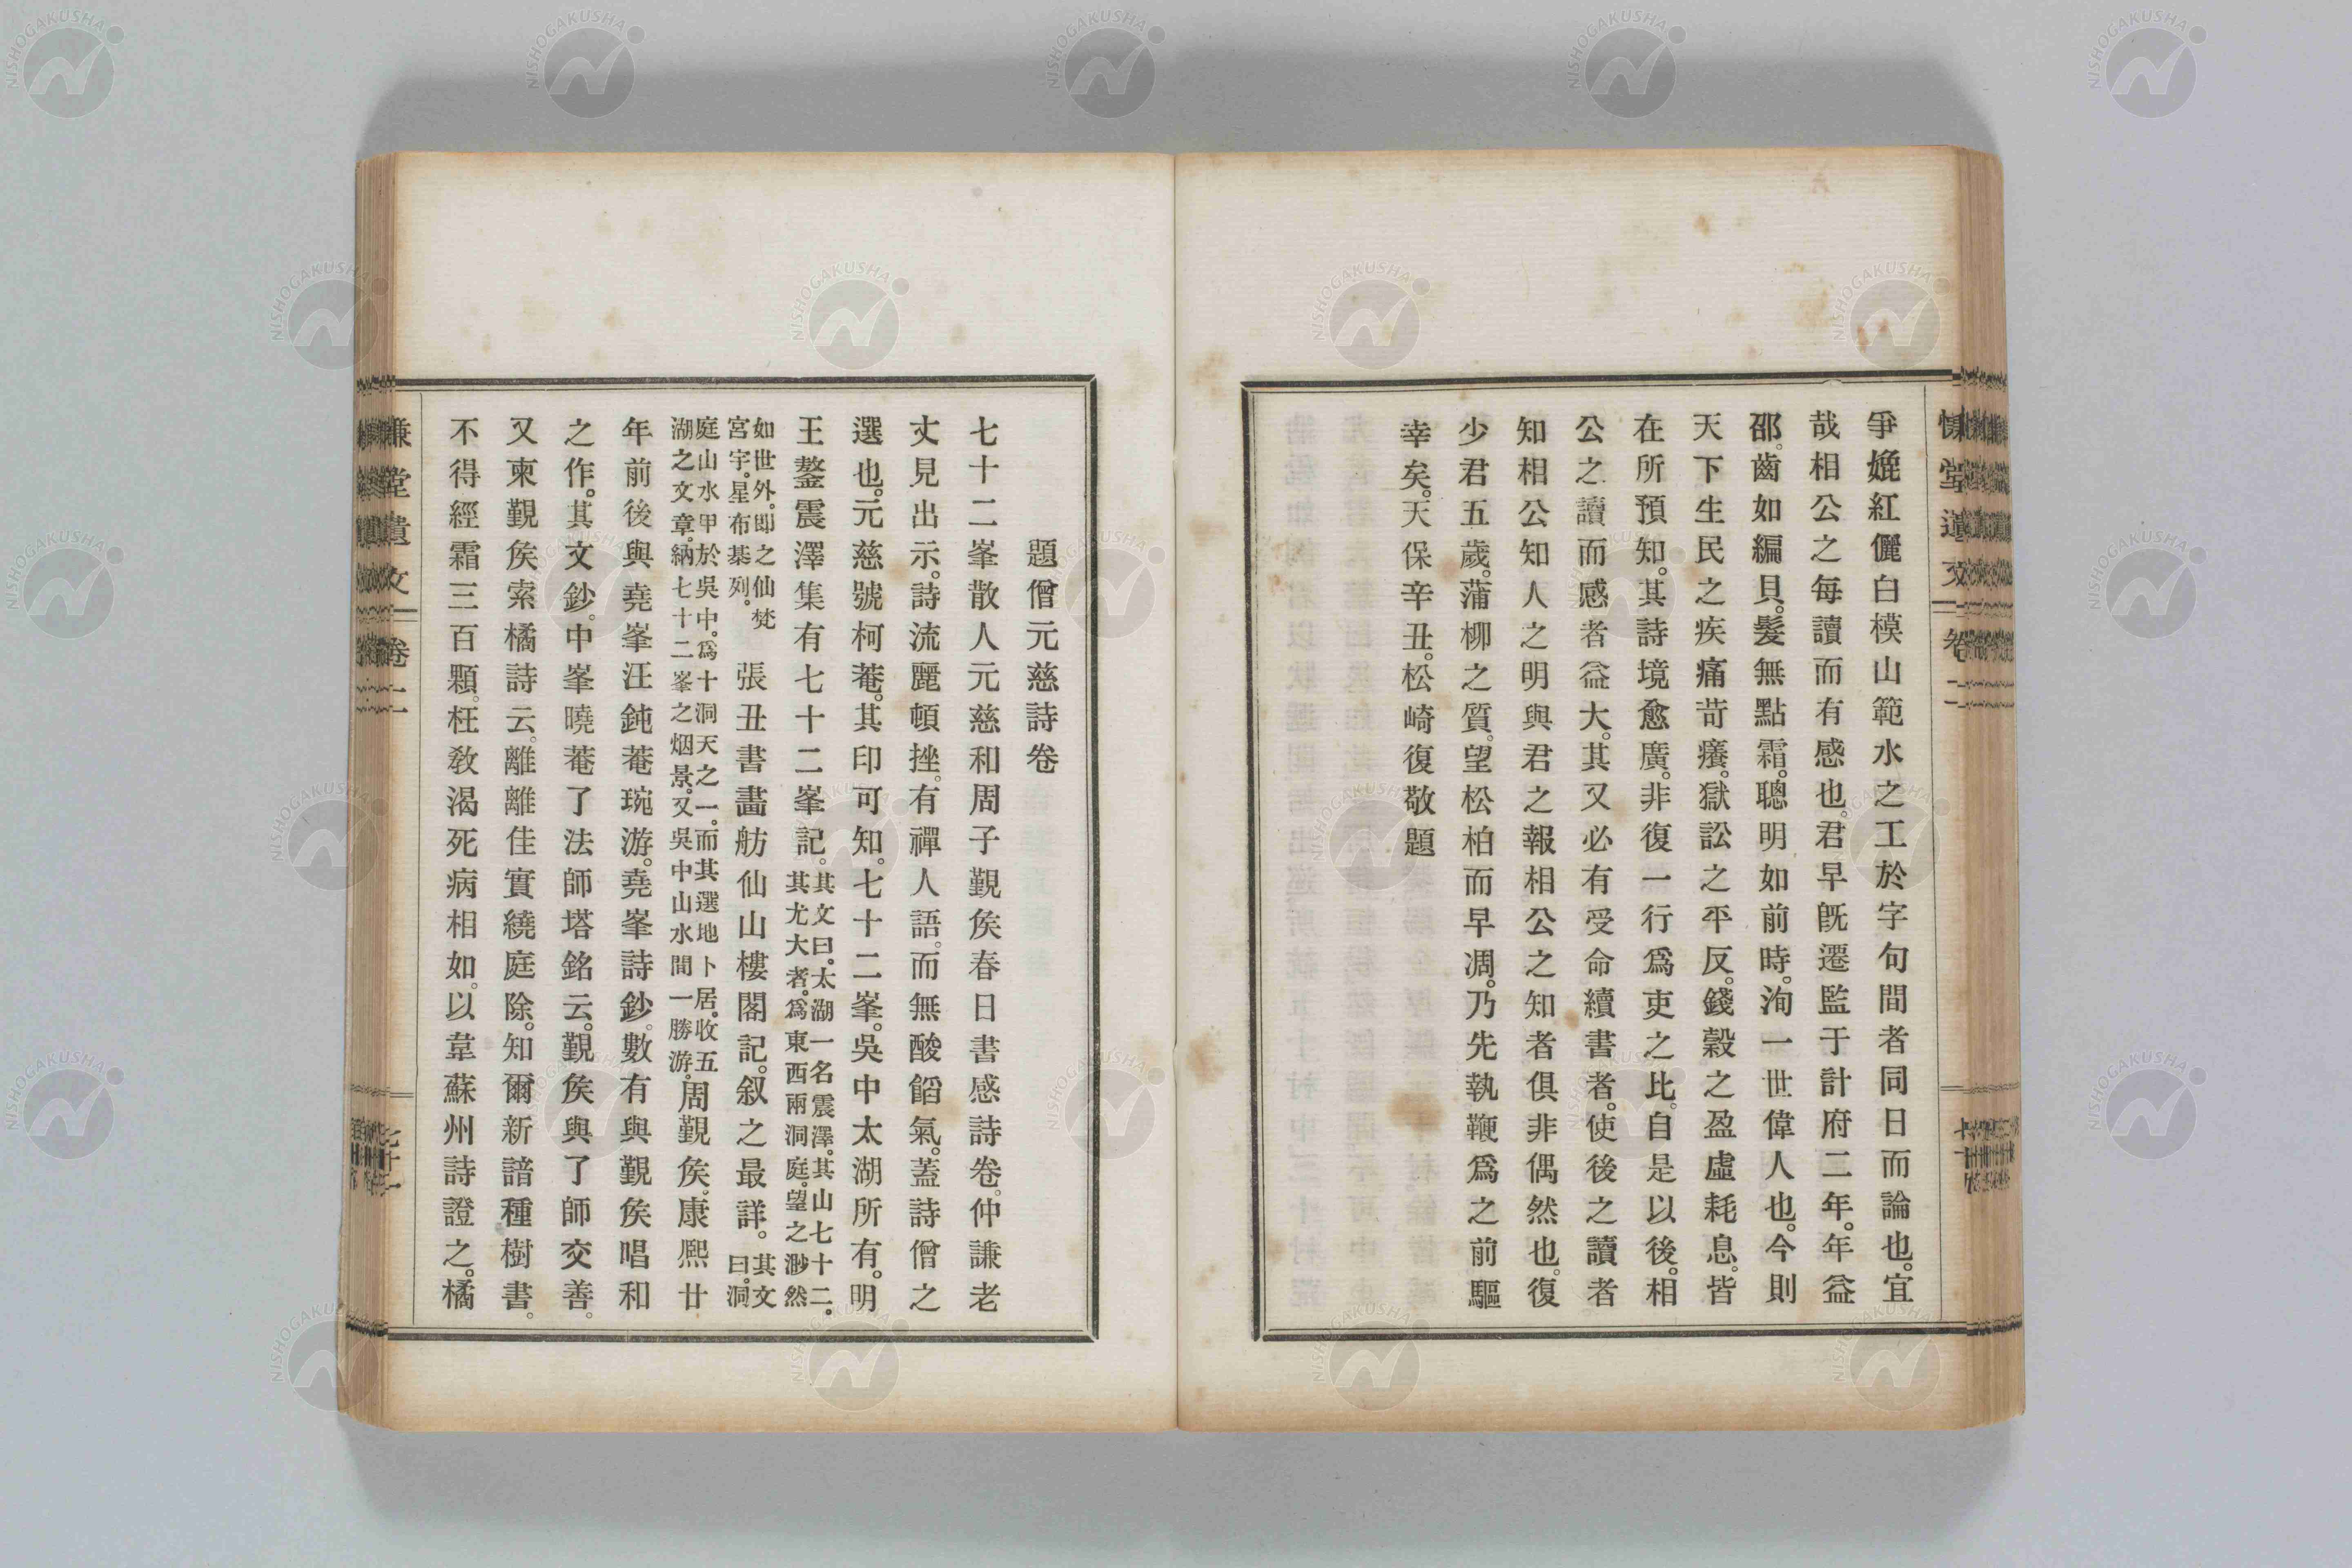 爭娩紅儷白模山範水之工於字句間者同日而論也。宜
哉相公之每讀而有感也。君早既遷監于計府二年。年益
邵。齒如編貝。髮無點霜。聰明如前時。洵一世偉人也。今則
天下生民之疾痛苛癢。獄訟之平反。錢穀之盈虛耗息。皆
在所預知。其詩境愈廣。非復一行爲吏之比。自是以後。相
公之讀而感者益大。其又必有受命續書者。使後之讀者
知相公知人之明與君之報相公之知者俱非偶然也。復
少君五歲。蒲柳之質。望松柏而早凋。乃先執鞭爲之前驅
幸矣。天保辛丑。松崎復敬題
題僧元慈詩卷
七十二峯散人元慈和周子覲矦春日書感詩卷。仲謙老
丈見出示。詩流麗頓挫。有禪人語。而無酸餡氣。蓋詩僧之
選也。元慈號柯菴。其印可知。七十二峯。吳中太湖所有。明
王鏊震澤集有七十二峯記。其文曰。太湖一名震澤。其山七十二。
其尤大者。爲東西兩洞庭。望之渺然
如世外。即之仙梵
宮宇。星布棊列。
張丑書畵舫仙山樓閣記。叙之最詳。其文
曰。洞
庭山水甲於吳中。爲十洞天之一。而其選地卜居。收五
湖之文章。納七十二峯之烟景。又吳中山水間一勝游。
周覲矦。康熙廿
年前後與堯峯汪鈍菴琬游。堯峯詩鈔。數有與覲矦唱和
之作。其文鈔。中峯曉菴了法師塔銘云。覲矦與了師交善。
又柬覲矦索橘詩云。離離佳實繞庭除。知爾新諳種樹書。
不得經霜三百顆。枉敎渴死病相如。以韋蘇州詩證之。橘
慊堂遺文
卷二
慊堂遺文
卷二